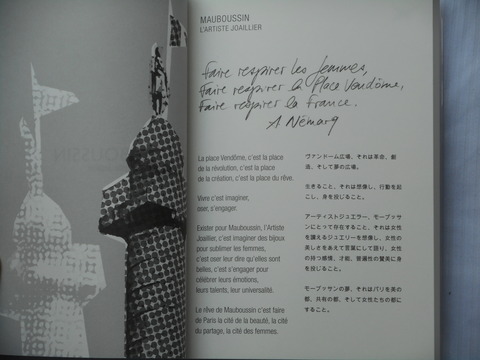 MAUBOUSSIN
L'ARTISTE JOAILLIER
Faire respirer les femmes,
Faire respirer la Place Vendôme,
Faire respirer la France.
A Némarq
La place Vendôme, c'est la place
de la révolution, c'est la place
de la création, c'est la place du rêve.
Vivre c'est imaginer,
oser, s'engager.
Exister pour Mauboussin, l'Artiste
Joaillier, c'est imaginer des bijoux
pour sublimer les femmes,
c'est oser leur dire qu'elles sont
belles, c'est s'engager pour
célébrer leurs émotions,
leurs talents, leur universalité.
Le rêve de Mauboussin c'est faire
de Paris la cité de la beauté, la cité
du partage, la cité des femmes.
ヴァンドーム広場、それは革命、創
造、そして夢の広場。
生きること、それは想像し、行動を起
こし、身を投じること。
アーティストジュエラー、モーブッサ
ンにとって存在すること、それは女性
を讃えるジュエリーを想像し、女性の
美しさをあえて言葉にして語り、女性
の持つ感情、才能、普遍性の賛美に身
を投じること。
モーブッサンの夢、それはパリを美の
都、共有の都、そして女性たちの都に
すること。